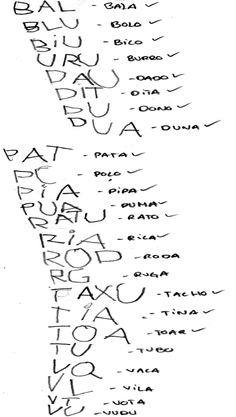 BAL - BALA ✓
BLU - BOLO ✓
BIU - BICO ✓
URU - BURRO ✓
DAU - DADO ✓
DIT - DITA ✓
DU - DONO ✓
DUA - DUNA ✓
PAT - PATA ✓
PÇ - POÇO ✓
PIA - PIPA ✓
PUA - PUMA ✓
RATU - RATO ✓
RIA - RICA ✓
ROD - RODA
RG - RUGA
TAXU - TACHO ✓
TIA - TINA ✓
TOA - TOAR ✓
TU - TUBO
VQ - VACA
VL - VILA
VT - VOTA
VU - VUDU